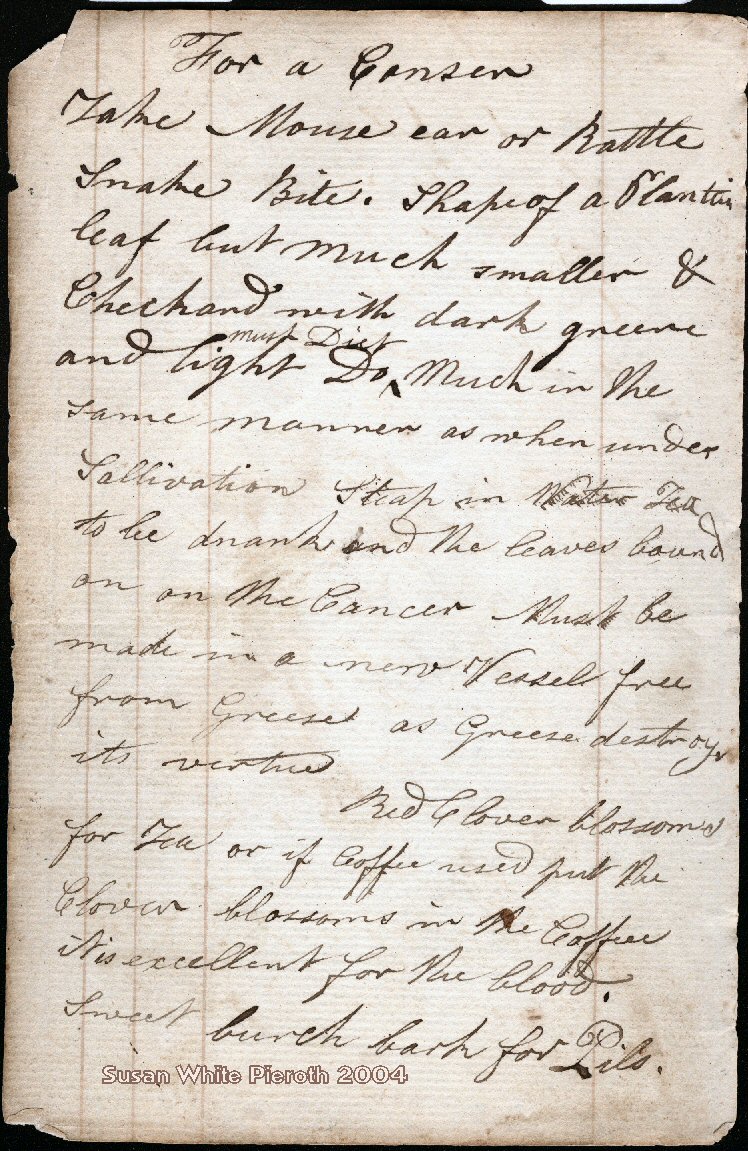 For a Canser
Take Mouse ear or Rattle
Snake Bite. Shape of a Plantin
leaf but much smaller &
Checkard with dark greene
must Diet
and light Do Much in the
same manner as when under
Sallivation Steap in Water Tea
to be drank and the leaves bound
on on the Cancer Must be
made in a new Vessel free
from Greese as Greese destroys
its virtue
Red Clover blossoms
for Tea or if Coffee used put the
Clover blossoms in the Coffee
it is excellent for the blood.
Sweet burch bark for Pils.
Susan White Pieroth 2004